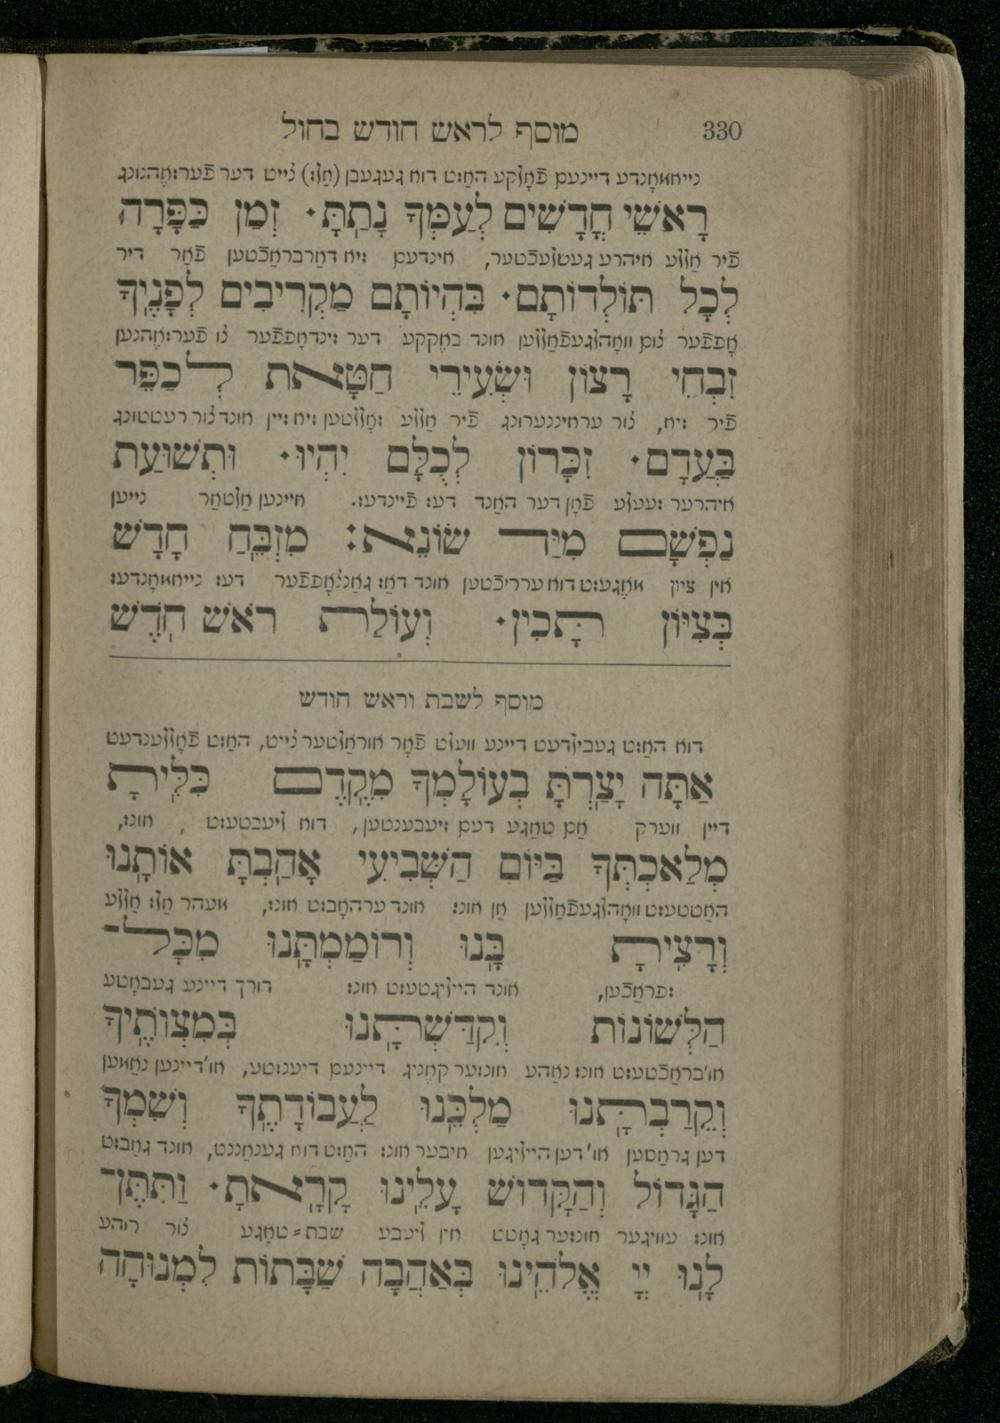 330 מוסף לראש חודש בחול
נייאמאָנדע דיינעם פֿאָלקע האַסט דוא געגעבן (אַלס) צייט דער פֿערזאָהנונג
רָאשֵׁי חֳדָשִׁים לְעַמְּךָ נָתָתָּ. זְמַן כַּפָּרָה
פֿיר אַללע איהרע געשלעכטער, אינדעם זיא דאַרבראַכטען פֿאָר דיר
לְכָל תּוֹלְדוֹתָם. בִּהְיוֹתָם מַקְרִיבִים לְפָנֶיךָ
אָפפֿער צום וואָהלגעפֿאַללען אונד באָקקע דער זינדאָפפֿער צו פֿערזאָהנען
זִבְחֵי רָצוֹן וּשְׂעִירֵי חַטָּאת לְכַפֵּר
פֿיר זיא, צור עראיננערונג פֿיר אַללע זאָללטען זיא זיין אונד צור רעטטונג
בַּעֲדָם. זִכָּרוֹן לְכֻלָּם יִהְיוּ. וּתְשׁוּעַת
איהרער זעעלע פֿאָן דער האַנד דעס פֿיינדעס. איינען אַלטאַר נייען
נַפְשָׁם מִיַּד שׂוֹנֵא: מִזְבֵּחַ חָדָשׁ
אין ציון מאָגעסט דוא ערריכטען אונד דאַס גאַנצאָפפֿער דעס נייאמאָנדעס
בְּצִיּוֹן תָּכִין. וְעוֹלַת רֹאשׁ חֹדֶשׁ
מוסף לשבת וראש חודש
דוא האַסט געבילדעט דיינע וועלט פֿאָר אוראַלטער צייט, האַסט פֿאָללענדעט
אַתָּה יָצַרְתָּ בְעוֹלָמְךָ מִקֶּדֶם כִּלִּיתָ
דיין ווערק אַם טאַגע דעם זיעבענטען, דוא ליעבטעסט אונס,
מְלַאכְתְּךָ בַּיּוֹם הַשְּׁבִיעִי אָהַבְתָּ אוֹתָנוּ
האַטטעסט וואָהלגעפֿאַללען אַן אונס אונד ערהאָבסט אונס, מעהר אַלס אַללע
וְרָצִיתָ בָּנוּ וְרוֹמַמְתָּנוּ מִכָּל־
שפראַכען, אונד הייליגטעסט אונס דורך דיינע געבאָטע
הַלְּשׁוֹנוֹת וְקִדַּשְׁתָּנוּ בְּמִצְוֹתֶיךָ
או'בראַכטעסט אונס נאַהע אונזער קאָניג דיינעם דיענסטע, או'דיינען נאַמען
וְקֵרַבְתָּנוּ מַלְכֵּנוּ לַעֲבוֹדָתֶךָ וְשִׁמְךָ
דען גראָסען או'דען הייליגען איבער אונס האַסט דוא גענאַננט, אונד גאַבסט
הַגָּדוֹל וְהַקָּדוֹשׁ עָלֵינוּ קָרָאתָ. וַתִּתֶּן־
אונס עוויגער אונזער גאָטט אין ליעבע שבת=טאַגע צור רוהע
לָנוּ יְיָ אֱלֹהֵינוּ בְּאַהֲבָה שַׁבָּתוֹת לִמְנוּחָה